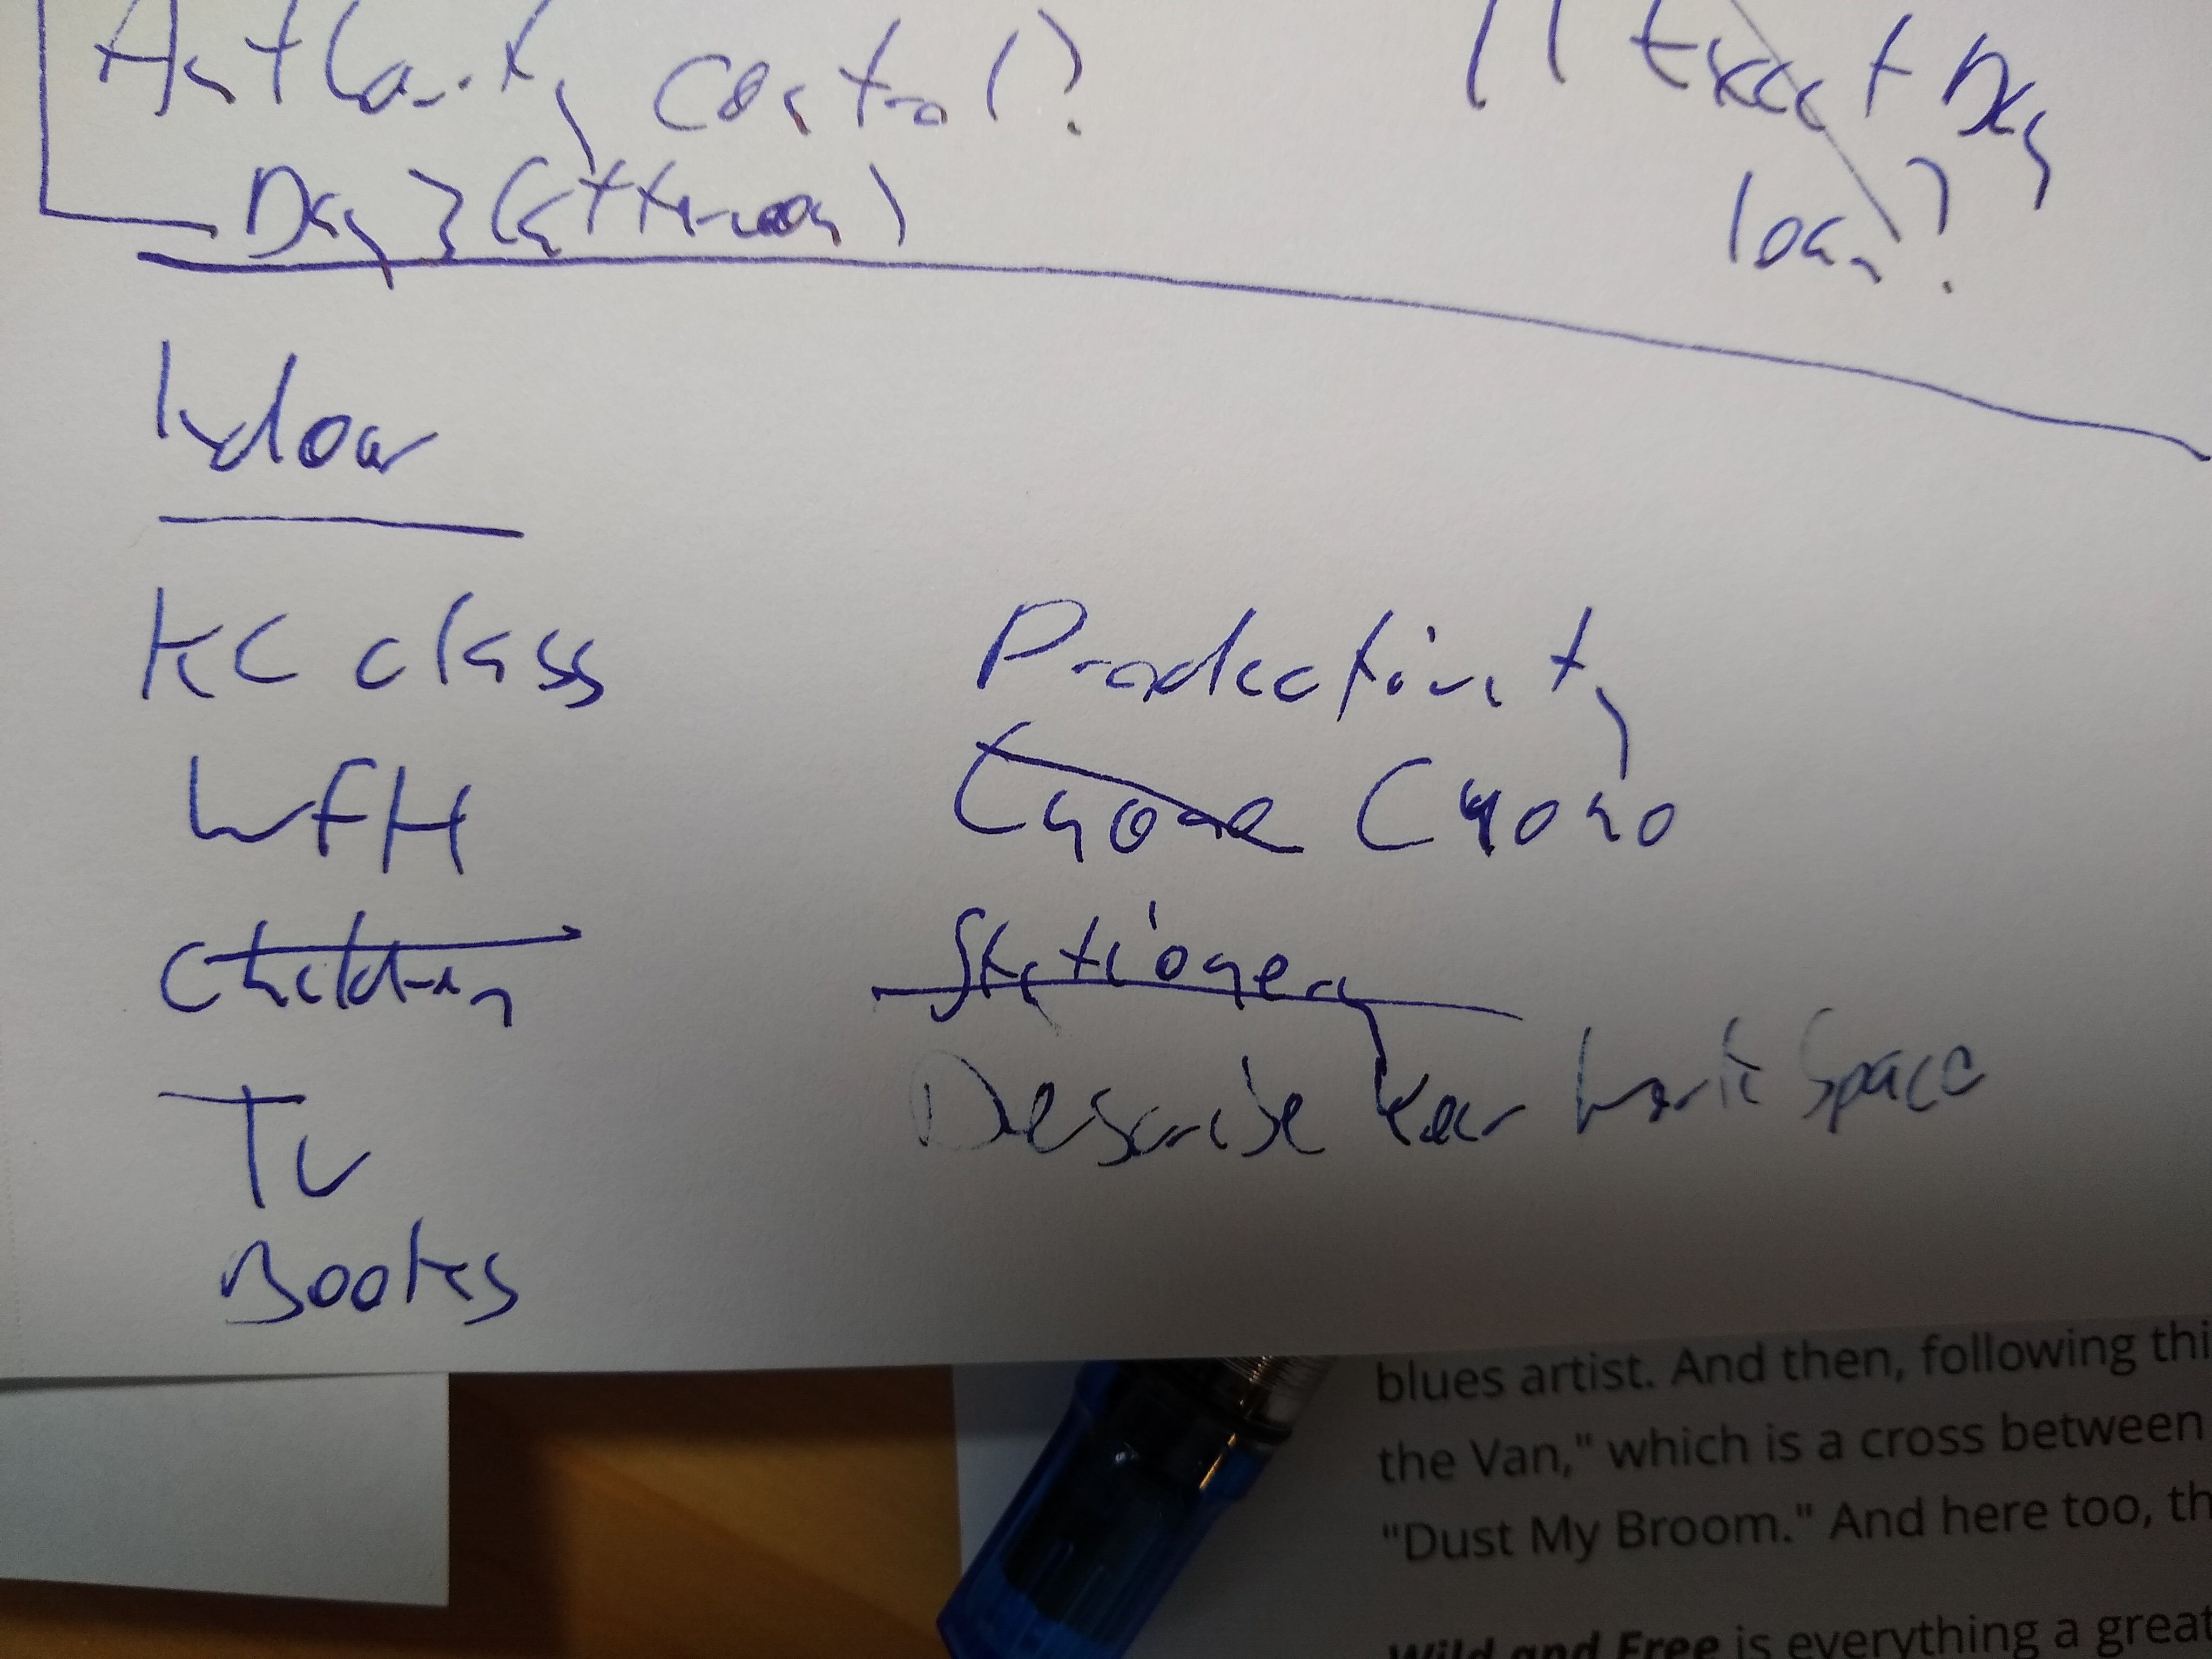 Authority control?
Exact Day
loan?
Day 3 (afternoon)
KC class
Productivity
WFH
Cyone Cyono
Children
Stationery
Describe Your Work Space
TV
Books
blues artist. And then, following thi
the Van," which is a cross between
"Dust My Broom." And here too, th
Wild and Free is everything a great